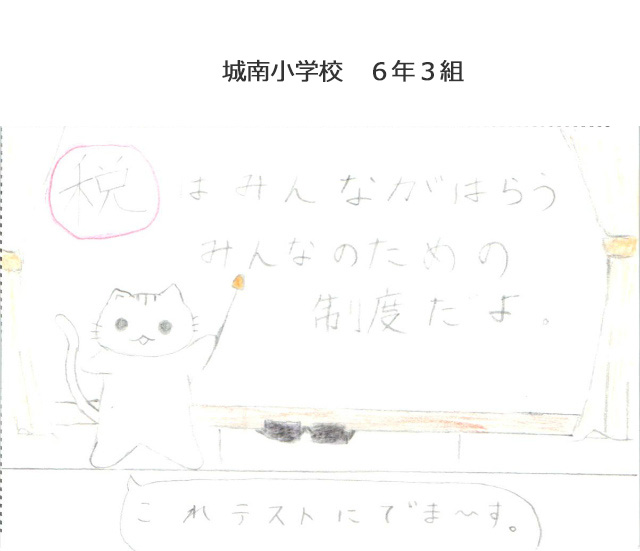 城南小学校　６年３組
税はみんながはらう
みんなのための
制度だよ。
これテストにでま～す。